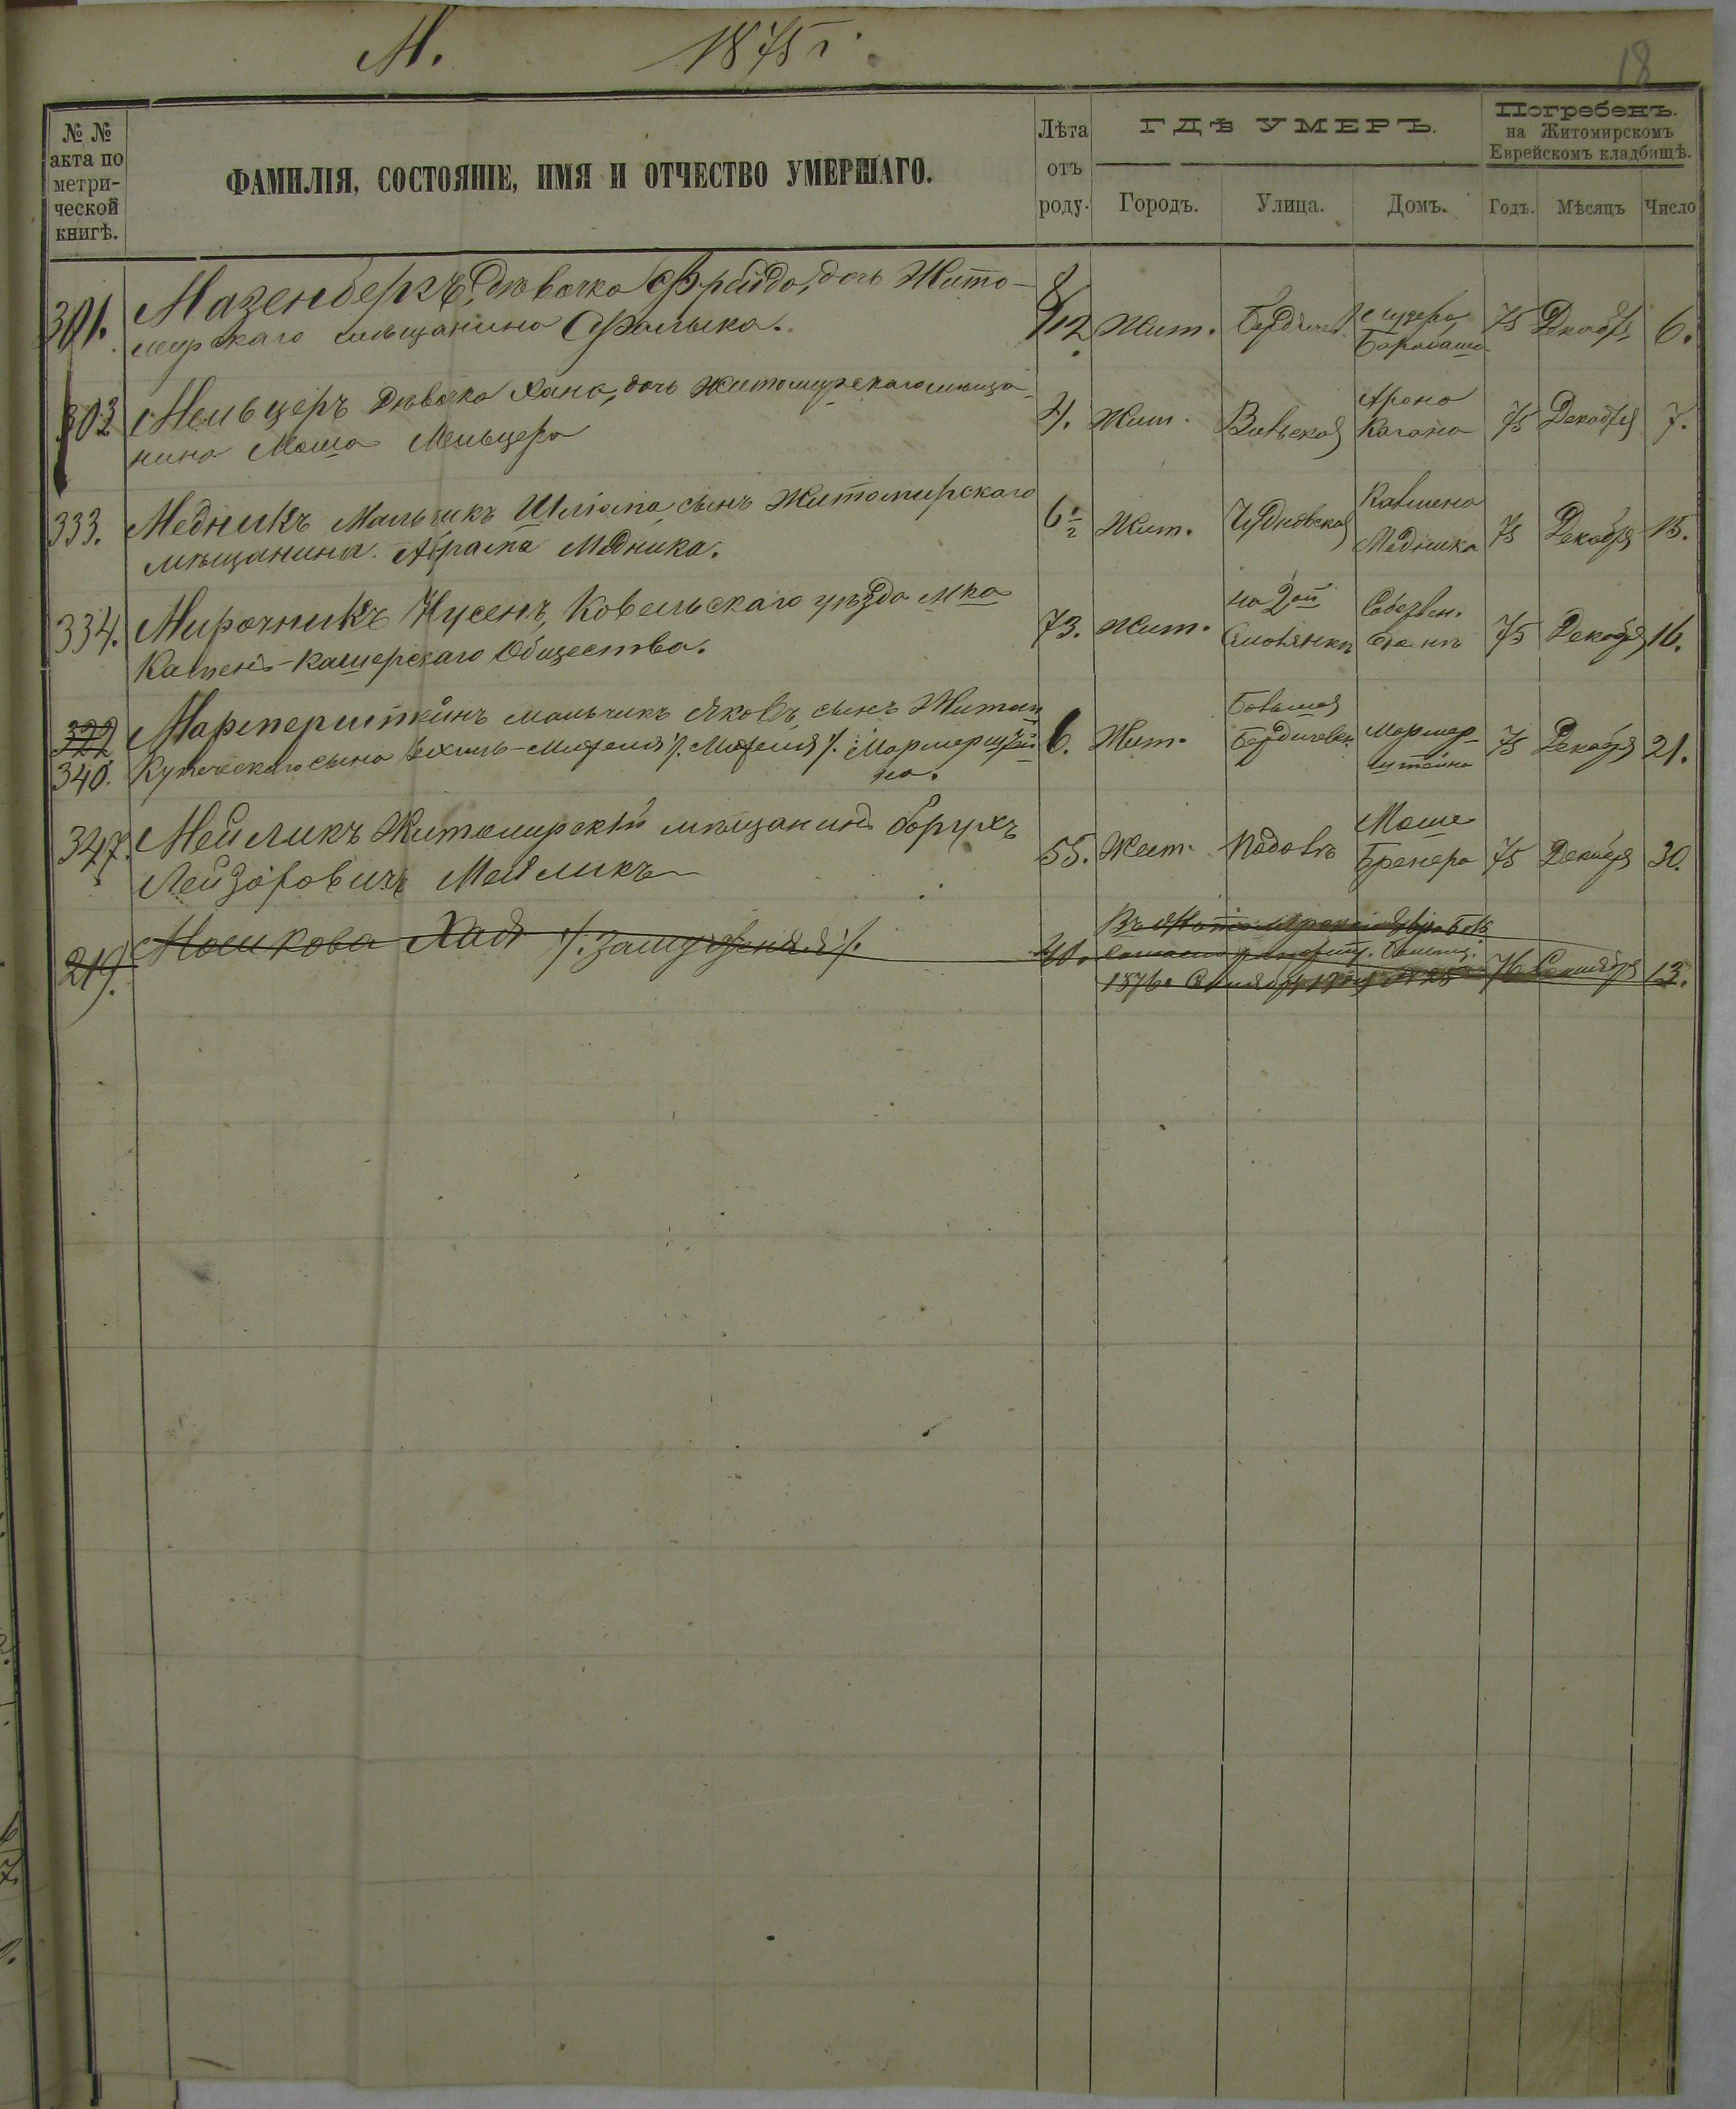 М. 1875 г.
18
№ № акта по метри- ческой книгѣ.
ФАМИЛІЯ, СОСТОЯНІЕ, ИМЯ И ОТЧЕСТВО УМЕРШАГО.
Лѣта отъ роду.
ГДѢ УМЕРЪ.
Городъ. Улица. Домъ.
Погребенъ.
на Житомирскомъ
Еврейскомъ кладбищѣ.
Годъ. Мѣсяцъ Число
301. Мазенбергъ, дѣвочка Фрейда, дочь Жито-
мирскаго мѣщанина Фалыка. 8/12 Жит. Бердичев. 75 Декабр. 6.
303 Мельцеръ дѣвочка Хана, дочь Житомирскаго мѣща-
нина Моша Мельцера 4. Жит. Вильская Арона Кагана 75 Декабря 7.
333. Медникъ Мальчикъ Шлiома, сынъ Житомирскаго
мѣщанина Абрама Медника. 6 1/2 Жит. Чудновская Медника 75 Декабря 15.
334. Мирочникъ Нусенъ, Ковельскаго уѣзда м-ка
Камень-Каширскаго Общества. 73. Жит. на 2ой 75 Декабря 16.
322
340. Мармерштейнъ мальчикъ Яковъ сынъ Житом.
Купеческаго сына Ихиль-Михеля /. Михеля /. Мармерштей-
на. 6. Жит. Большая Бердичевск. Мармер- штейна 75 Декабря 21.
347. Мейликъ Житомирскій мѣщанинъ Борухъ
Лейзоровичъ Мейликъ 55. Жит. Подолъ Моше Бренера 75 Декабря 30.
219. Мошкова Хая /. замужняя /. 40. Въ Житомирской
1876 Сентября 76 Сентября 13.